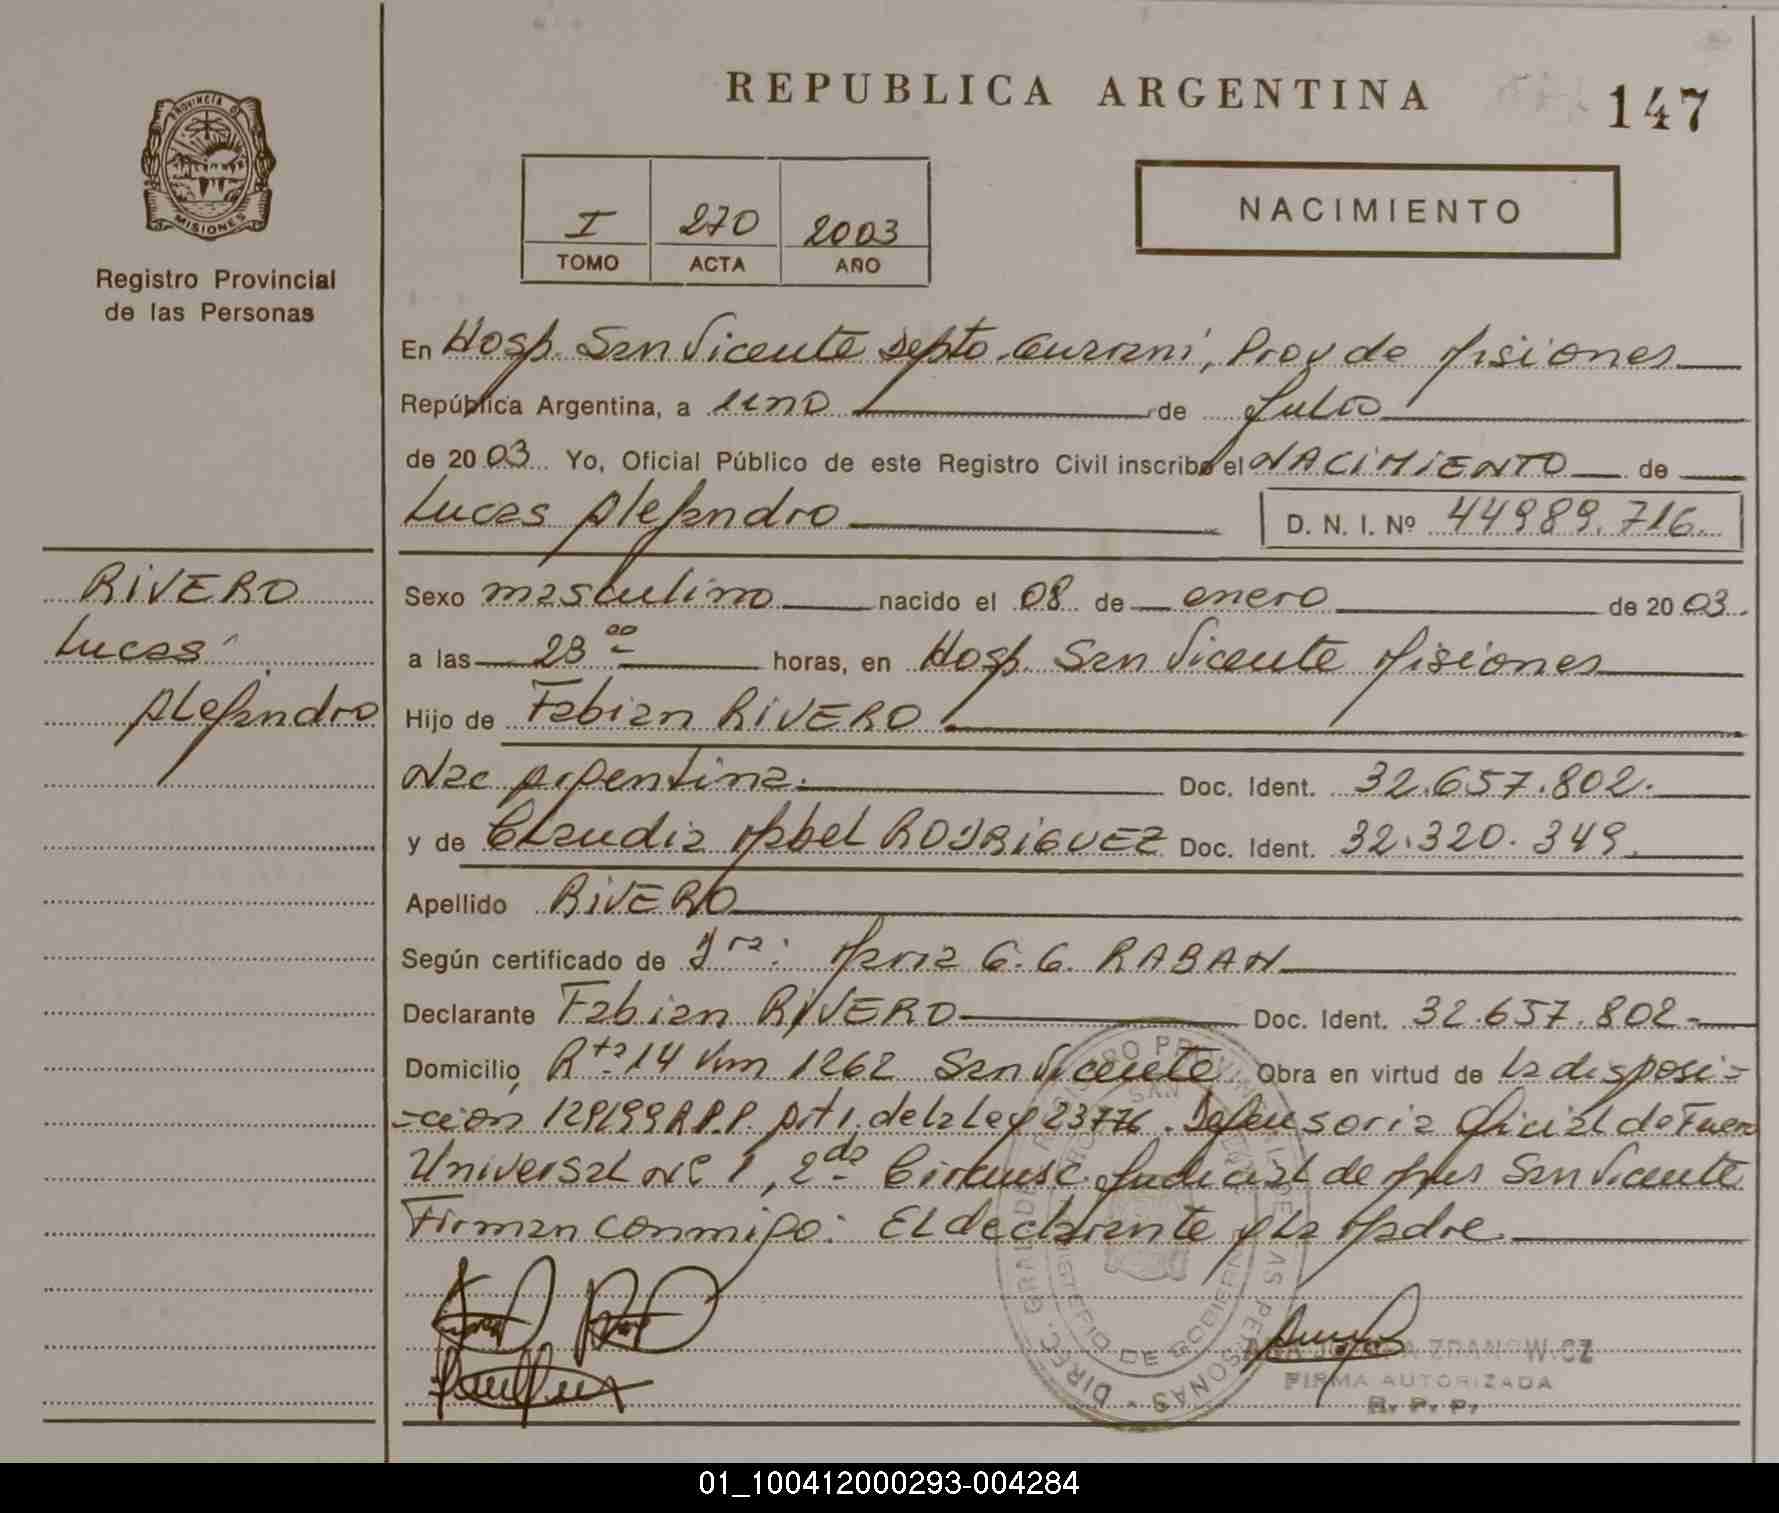 REPUBLICA ARGENTINA
147
PROVINCIA DE
MISIONES
Registro Provincial
de las Personas
I 270 2003
TOMO ACTA AÑO
NACIMIENTO
En Hosp. San Vicente Depto. Guarani, Prov de Misiones
República Argentina, a uno de Julio
de 2003 Yo, Oficial Público de este Registro Civil inscribo el NACIMIENTO de
Lucas Alejandro D. N. I. Nº 44989.716.
RIVERO
Lucas
Alejandro
Sexo masculino nacido el 08 de enero de 2003.
a las 23 00 horas, en Hosp. San Vicente Misiones
Hijo de Fabian RIVERO
Nac Argentina. Doc. Ident. 32.657.802.
y de Claudia Mabel RODRIGUEZ Doc. Ident. 32.320.349.
Apellido RIVERO
Según certificado de Dra: Maria G. G. RABAN
Declarante Fabian RIVERO Doc. Ident. 32.657.802-
Domicilio, Rta. 14 Km 1262 San Vicente Obra en virtud de la disposi-
-cion 129/99 R.P.P. Art 1. de la Ley 23776. Defensoria Oficial de Fuero
Universal Nº 1, 2da Circunsc. Judicial de Mnes San Vicente
Firman conmigo: El declarante y La Madre.
FIRMA AUTORIZADA
R. P. P.
DIREC. GRAL DE REGISTRO PROVINCIAL DE LAS PERSONAS
MINISTERIO DE GOBIERNO
01_100412000293-004284